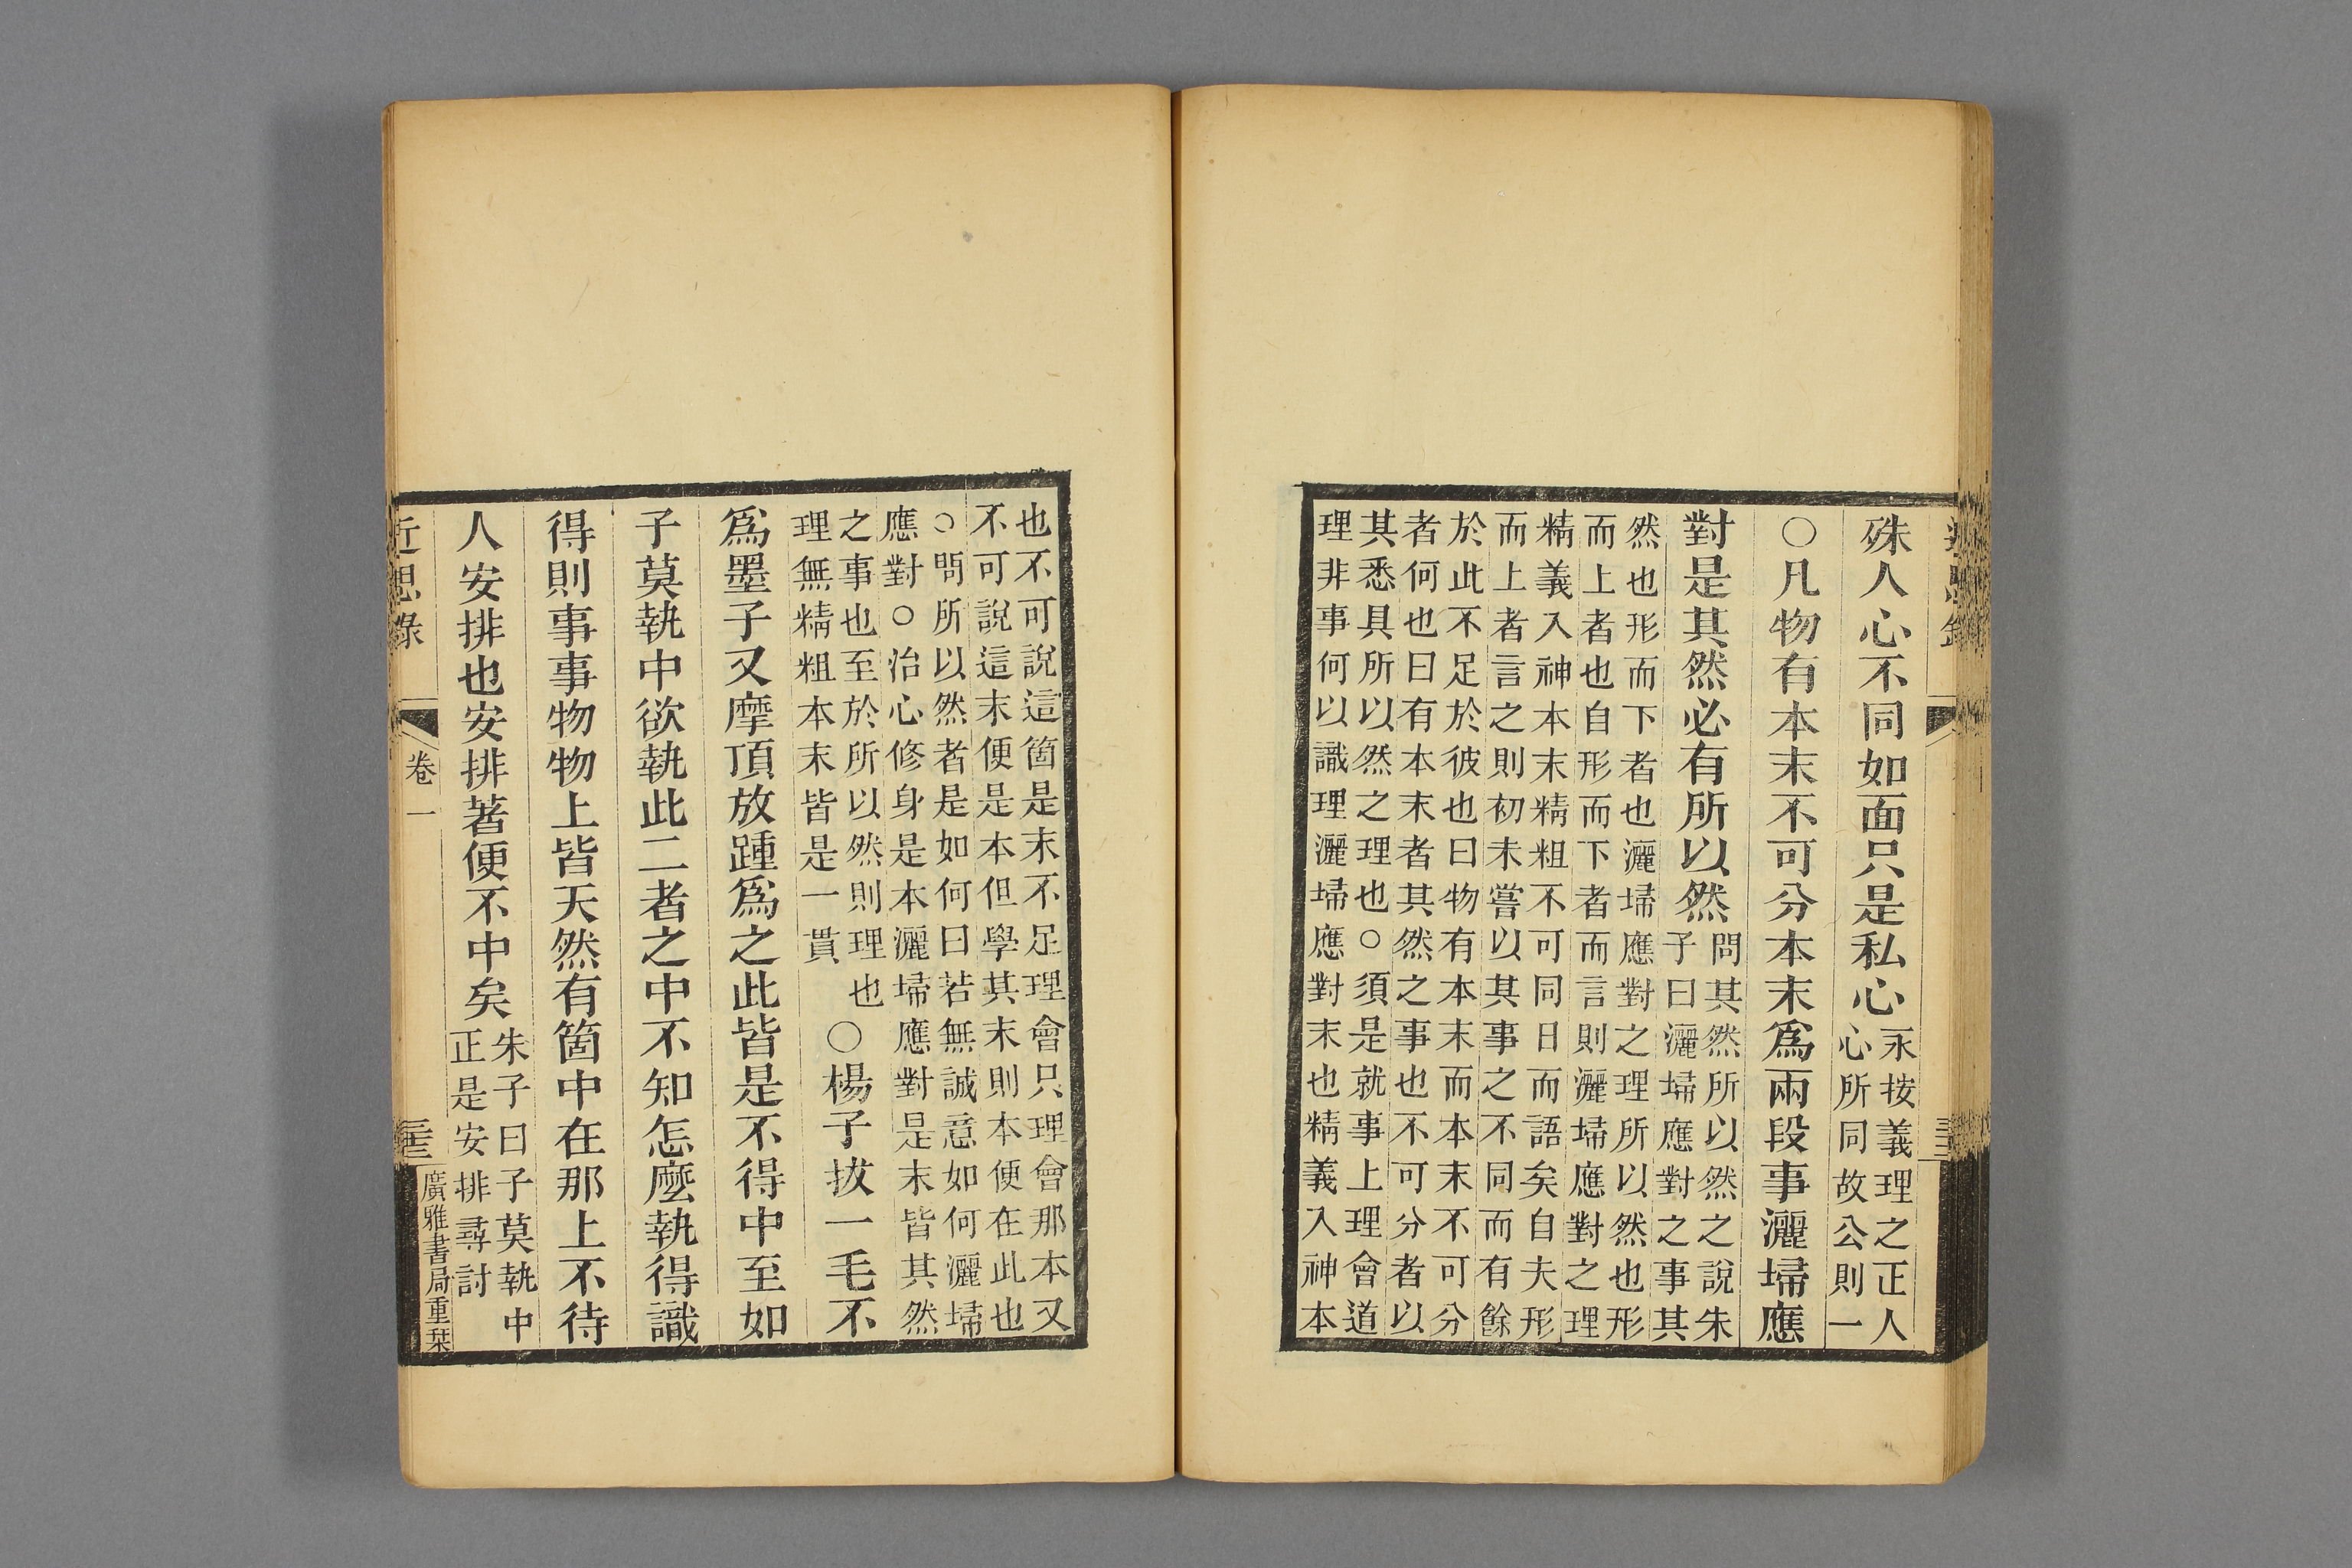 殊人心不同如面只是私心
永按義理之正人
心所同故公則一
○凡物有本末不可分本末爲兩段事灑埽應
對是其然必有所以然
問其然所以然之說朱
子曰灑埽應對之事其
然也形而下者也灑埽應對之理所以然也形
而上者也自形而下者而言則灑埽應對之理
精義入神本末精粗不可同日而語矣自夫形
而上者言之則初未嘗以其事之不同而有餘
於此不足於彼也曰物有本末而本末不可分
者何也曰有本末者其然之事也不可分者以
其悉具所以然之理也○須是就事上理會道
理非事何以識理灑埽應對末也精義入神本
也不可說這箇是末不足理會只理會那本又
不可說這末便是本但學其末則本便在此也
○問所以然者是如何曰若無誠意如何灑埽
應對○治心修身是本灑埽應對是末皆其然
之事也至於所以然則理也
理無精粗本末皆是一貫
○楊子拔一毛不
爲墨子又摩頂放踵爲之此皆是不得中至如
子莫執中欲執此二者之中不知怎麼執得識
得則事事物物上皆天然有箇中在那上不待
人安排也安排著便不中矣
朱子曰子莫執中
正是安排尋討
近思錄
卷一
廣雅書局重栞